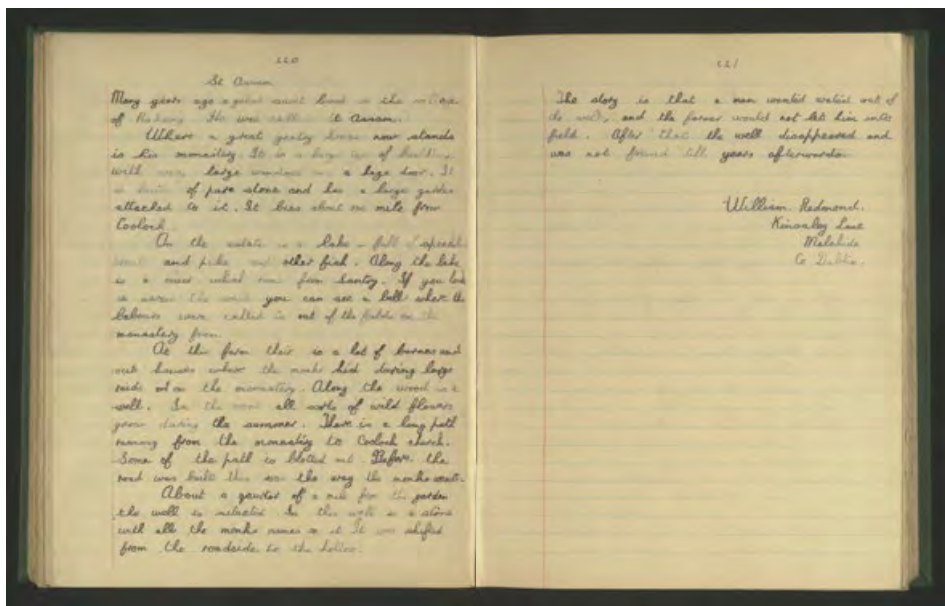 220
St Assam
Many years ago a great saint lived in the village
of Raheny He was called St Assam.
Where a great pretty house now stands
is his monastery. It is a large of building
with large windows a large door. It
is of pure stone and has a large garden
attached to it. It lies about one mile from
Coolock.
On the estate is a lake full of
and pike and other fish. Along the lake
is a river what runs from Santry. If you look
in you can see a bell where the
labours were called in out of the fields on the
monastery farm.
At the farm their is a lot of barnes and
out houses where the monks hid during large
raids on the monastery. Along the wood is a
well. In the wood all sorts of wild flowers
grow during the summer. There is a long path
running from the monastery to Coolock church.
Some of the path is blotted out Before the
road was built this was the way the monks went.
About a quarter of a mile from the garden
the well is situated In this well is a stone
with all the monks names on it It was shifted
from the roadside to the hollow.
221
The story is that a man wanted out of
the well, and the farmer would not let him into
field. After that the well disappeared and
was not found till years afterwards.
William Redmond.
Kinsaley Lane
Malahide
Co Dublin.